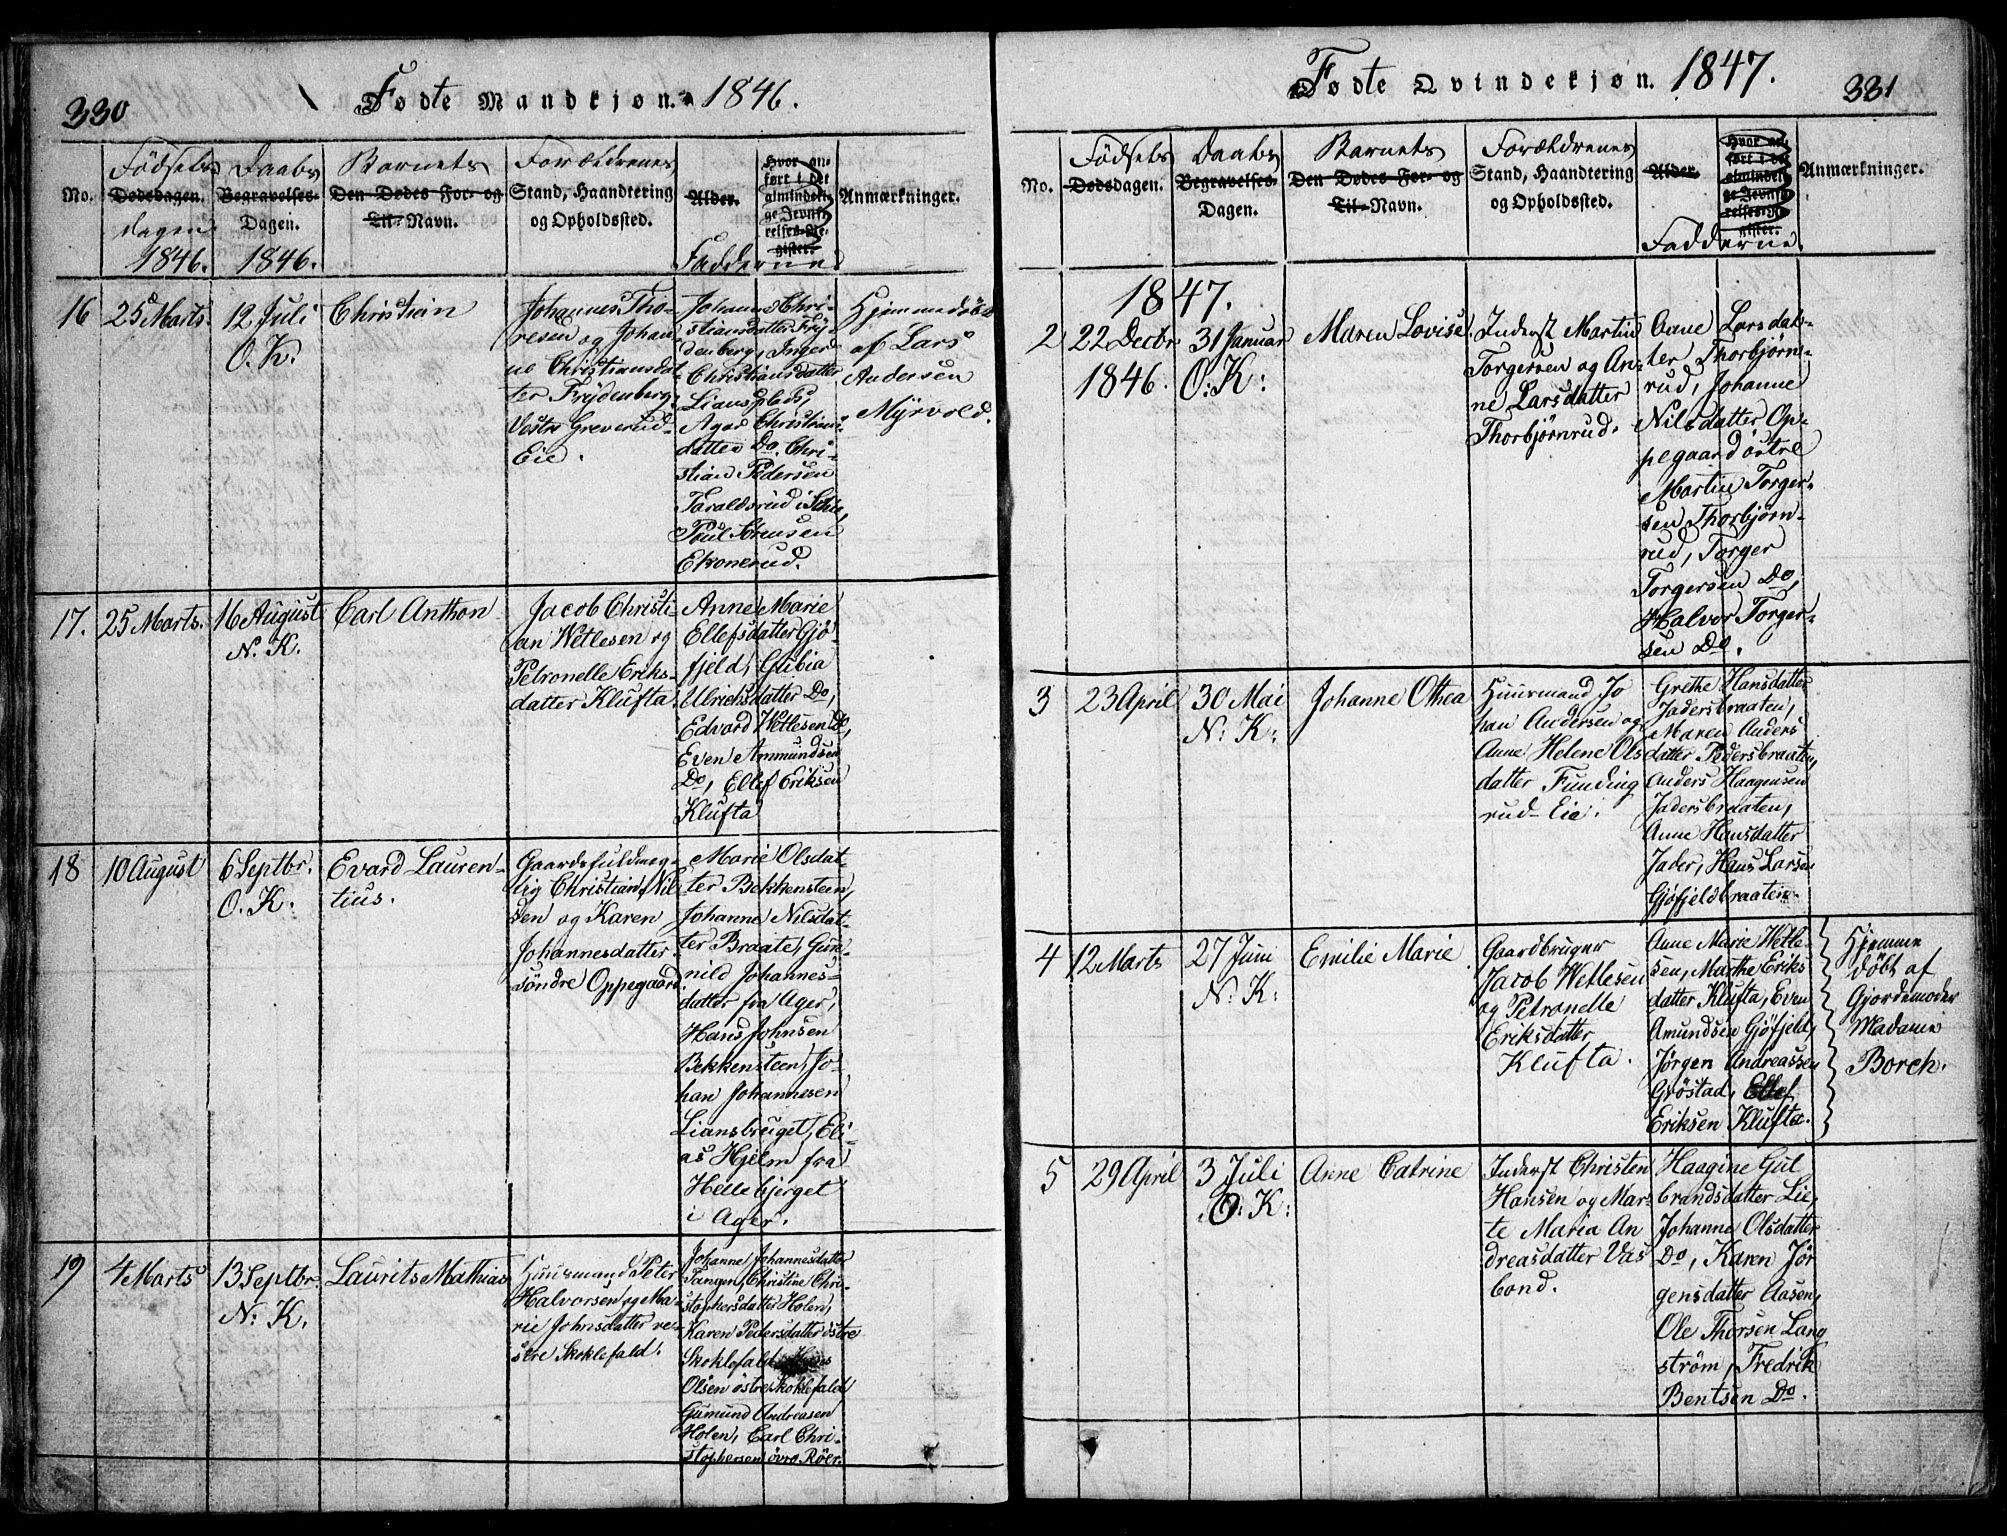 330
Fødte Mandkjøn. 1846.
No.
Födsels
Dødsdagen.
dagen
1846.
Daabs
Begravelses-
Dagen.
1846.
Barnets
Den Dødes For- og
Til-Navn.
Forældrenes
Stand, Haandtering
og Opholdssted.
Alder.
Hvor an-
ført i det
almindeli-
ge Jevnfø-
relses-Re-
gister.
Fadderne.
Anmærkninger.
16
25 Marts.
12 Juli
O. K.
Christian
Johannes Tho-
resen og Johan-
ne Christiansdat-
ter Frydenberg,
Vestre Greverud-
Eie.
Johanne Chri-
stiansdatter Fry-
denberg, Inger
Christiansdatter
Liansplads,
Agar Christians-
datter Do, Chri-
stian Pedersen
Taraldsrud i Skie,
Poul Sörensen
Ekornrud.
Hjemmedöbt
af Lars
Andersen
Myrvold.
17.
25 Marts.
16 August
N. K.
Carl Anthon
Jacob Christi-
an Wetlesen og
Petronelle Eriks-
datter Klufta.
Anne Marie
Ellefsdatter Gjö-
fjeld, Gubia
Ulrichsdatter Do,
Edvard Wetlesen Do,
Even Ammundsen
Do, Ellef Eriksen
Klufta
18
10 August
6 Septbr.
O. K.
Evard Lauren-
tius.
Gaardsfuldmæg-
tig Christian Nil-
sen og Karen
Johannesdatter
söndre Oppegaard.
Marie Olsdat-
ter Bekkensteen,
Johanne Nilsdat-
ter Braate, Gun-
nild Johannes-
datter fra Ager,
Hans Johnsen
Bekkensteen, Jo-
han Johannesen
Liansbruget, Eli-
as Hjelm fra
Hellebjerget
i Ager.
19
4 Marts
13 Septbr.
N. K.
Laurits Mathias
Huusmand Peter
Halvorsen og Ma-
rie Johnsdatter ve-
stre Skoklefald.
Johanne Johannesdatter
Tangen, Christine Chri-
stophersdatter Holen,
Karen Pedersdatter östre
Skoklefald,
Olsen östre Skoklefald
Gumund Andreasen
Holen, Carl Chri-
stophersen övre Röer.
Fødte Qvindekjøn. 1847.
331
No.
Födsels
Dødsdagen.
Daabs
Begravelses-
Dagen.
Barnets
Den Dødes For- og
Til-Navn.
Forældrenes
Stand, Haandtering
og Opholdssted.
Alder.
Hvor an-
ført i det
almindeli-
ge Jevnfø-
relses-Re-
gister.
Fadderne.
Anmærkninger.
1847.
2
22 Decbr
1846.
31 Januar
O: K:
Maren Lovise.
Inderst Martin
Torgersen og An-
ne Larsdatter
Thorbjørnrud.
Anne Larsdat-
ter Thorbjørn-
rud, Johanne
Nilsdatter Op-
pegaard östre
Martin Torger-
sen Thorbjørn-
rud, Torger
Torgersen Do,
Halvor Torger-
sen Do.
3
23 April
30 Mai
N: K:
Johanne Othea
Huusmand Jo
han Andersen og
Anne Helene Ols
datter Funding
rud-Eie.
Grethe Hansdatter
Jadersbraaten,
Maren Anders
datter Pedersbraaten,
Anders Haagensen
Jadersbraaten,
Anne Hansdatter
Jader, Hans Larsen
Gjøfjeldbraaten.
4
12 Marts
27 Juni
N: K:
Emilie Marie
Gaardbruger
Jacob Wetlesen
og Petronelle
Eriksdatter
Klufta.
Anne Marie Wetle-
sen, Marthe Eriks
datter Klufta, Even
Amundsen Gjøfjeld,
Jørgen Andreassen
Grøstad, Ellef
Eriksen Klufta.
Hjemme
döbt af
Gjordemoder
Madame
Borch.
5
29 April
3 Juli
O: K:
Anne Catrine
Inderst Christen
Hansen og Mar-
te Maria An
dreasdatter Vas
bond.
Haagine Gul
brandsdatter Lie,
Johanne Olsdatter
Do, Karen Jör
gensdatter Aasen,
Ole Thorsen Lang
ström, Fredrik
Bentsen Do.